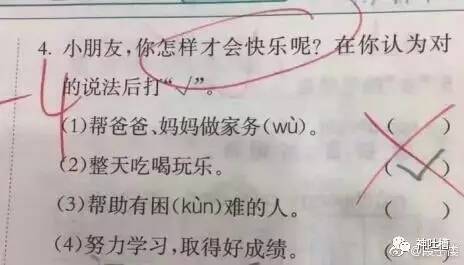 4. 小朋友,你怎样才会快乐呢?在你认为对
的说法后打“√”。
-4
(1)帮爸爸、妈妈做家务(wù)。 ( )
(2)整天吃喝玩乐。 (√)
(3)帮助有困(kùn)难的人。 ( )
(4)努力学习,取得好成绩。 ( )
神吐槽